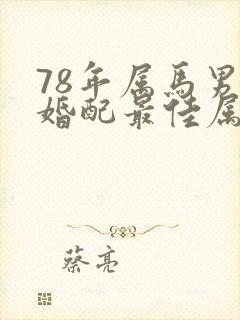 78年属马男
婚配最佳属
蔡亮